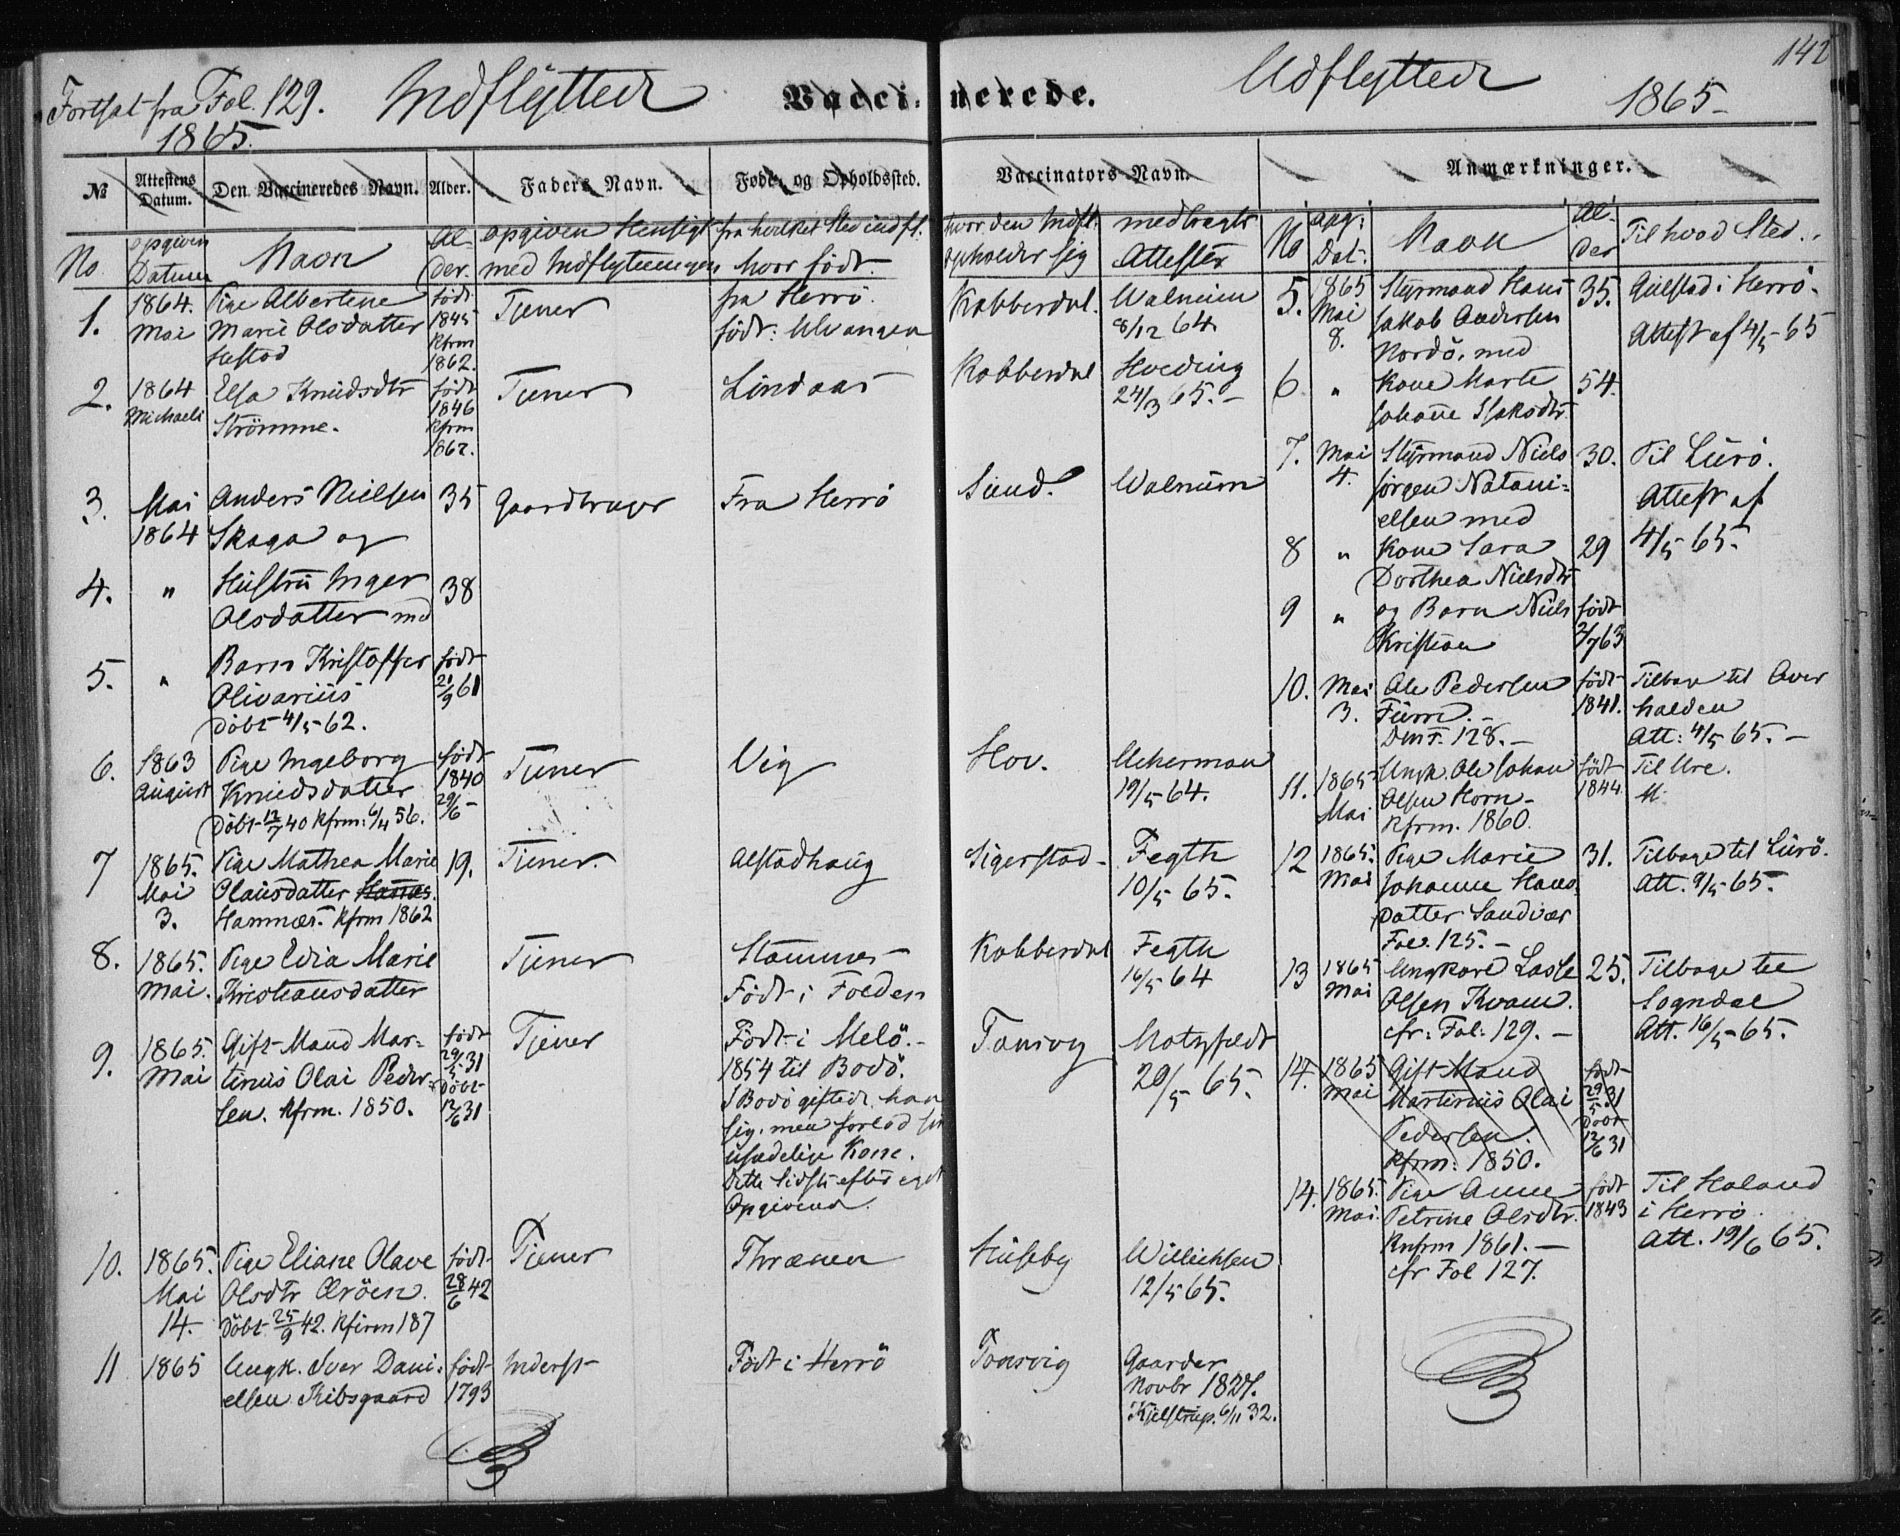 142
Fortsat fra Fol. 129.
1865.
Indflyttede
Vaccinerede.
Udflyttede
1865
№ Attestens Datum. Den Vaccineredes Navn. Alder. Faders Navn. Føde- og Opholdssted. Vaccinators Navn. Anmærkninger.
No opgiven Datum Navn Alder. opgiven Hensigt med Indflytningen fra hvilket Sted indfl. hvor født. hvor den Indfl. opholder sig medbragte Attester
1. 1864. Pige Albertine født Tjener fra Herrö. Kobberdal. Walnum
Mai Marie Olsdatter 1845 født: Ulvangen 8/12 64
Kfrm
1862.
2. 1864 Elsa Knudsdtr født Tjener Lindaas Kobberdal Hveding
Michaeli Strömme. 1846 24/3 65.
Kfrm
1862.
3. Mai Anders Nielsen 35 Gaardbruger Fra Herrö Sund. Walnum
1864 Skaga og
4. " Hustru Inger 38
Olsdatter med
5. " Barn Kristoffer født
Olivarius 21/9 61
Döbt 4/5 62.
6. 1863 Pige Ingeborg født Tjener Vig Hov. Ackerman
August Knudsdatter 1840 19/5 64.
Döbt 12/7 40 Kfrm: 6/4 56. 29/6
7 1865. Pige Mathea Marie 19. Tjener. Alstadhaug Sigerstad Fegth
Mai Olausdatter 10/5 65.
3. Hamnæs. Kfrm 1862
8. 1865. Pige Edia Marie Tjener Stammes Kobberdal Fegth
Mai. Kristiansdatter Født i Folden 16/5 64
9. 1865. Gift Mand Mar- født Tjener Født i Melö. Tonsvig Motzfeldt
Mai tinus Olai Peder- 29/5 31 1854 til Bodö. 20/5 65.
sen. Kfrm. 1850. Döbt I Bodö giftede han
12/6 31 sig, men forlod sin
usædelige Kone.
Dette Sidste efter eget
Opgivende.
10. 1865. Pige Eliane Olave født Tjener Thrænen Huseby Willichsen
Mai Olsdtr 28/6 42 12/5 65.
14. Döbt 25/9 42. Kfirm 187
11 1865 Ungk. Iver Dani- født Inderst Født i Herrö Tonsvig Gaarder
elsen Kibsgaard 1793 Novbr 1827.
Kjelstrup. 6/11 32.
No opg. Dat. Navn Alder Til hvad Sted.
5. 1865 Styrmand Hans 35. Gulstad i Herrö.
Mai Jakob Andersen Attest af 4/5 65
8. Nordö, med
6. " Kone Marte 54.
Johanne Isaksdtr
7. Mai Styrmand Niels 30. Til Lurö.
4. Jörgen Natani- Attest af
elsen med 4/5 65.
8 " Kone Sara 29
Dorthea Nielsdtr
9 " og Barn Niels født
Kristian 2/7 63
10. Mai Ole Pedersen født Tilbage til Over
3. 1841. halden
128. Att: 4/5 65.
11. 1865 Ungk. Ole Johan født Til Ure.
Mai Olsen Horn 1844
Kfrm. 1860.
12 1865. Pige Marie 31. Tilbage til Lurö.
Mai Johanne Hans Att. 9/5 65.
datter Sandvær
Fol. 125.
13 1865 Ungkarl Lasse 25. Tilbage til
Mai Olsen Kvam. Sogndal
cfr: Fol: 129. Att. 16/5 65.
14. 1865 Gift Mand født
Mai Martinus Olai 29/5 31
Pedersen. Döbt
Kfrm: 1850. 12/6 31
14. 1865. Pige Anne født Til Haland
Mai. Petrine Olsdtr. 1843 i Herrö
Knfrm 1861. Att. 19/6 65.
cfr Fol 127.